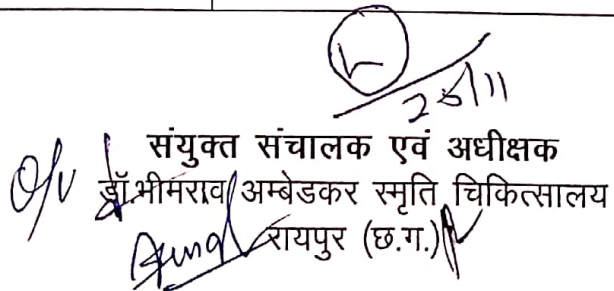 25/11
संयुक्त संचालक एवं अधीक्षक
डॉ.भीमराव अम्बेडकर स्मृति चिकित्सालय
रायपुर (छ.ग.)